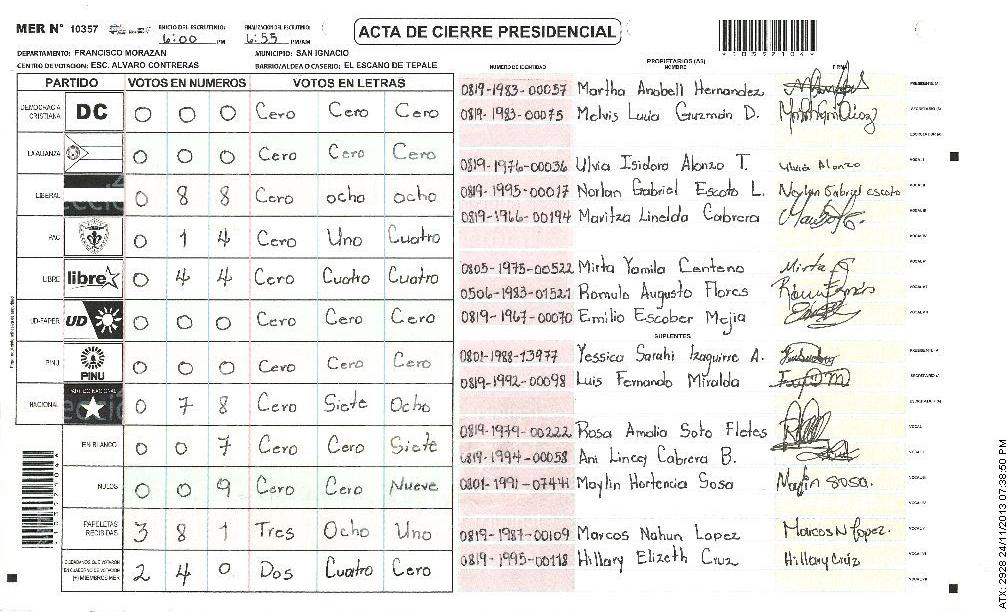 MER N° 10357 INICIO DEL ESCRUTINIO: 6:00 PM FINALIZACION DEL ESCRUTINIO: 6:55 PM/AM
ACTA DE CIERRE PRESIDENCIAL
DEPARTAMENTO: FRANCISCO MORAZAN MUNICIPIO: SAN IGNACIO
CENTRO DE VOTACION: ESC. ALVARO CONTRERAS BARRIO/ALDEA O CASERIO: EL ESCANO DE TEPALE
PARTIDO VOTOS EN NUMEROS VOTOS EN LETRAS
DEMOCRACIA CRISTIANA DC 0 0 0 Cero Cero Cero
LA ALIANZA 0 0 0 Cero Cero Cero
LIBERAL 0 8 8 Cero ocho ocho
PAC 0 1 4 Cero Uno Cuatro
LIBRE libre 0 4 4 Cero Cuatro Cuatro
UD-FAPER UD 0 0 0 Cero Cero Cero
PINU PINU 0 0 0 Cero Cero Cero
NACIONAL 0 7 8 Cero Siete Ocho
EN BLANCO 0 0 7 Cero Cero Siete
NULOS 0 0 9 Cero Cero Nueve
PAPELETAS RECIBIDAS 3 8 1 Tres Ocho Uno
CIUDADANOS QUE VOTARON EN CUADERNO DE VOTACION (+) MIEMBROS MER 2 4 0 Dos Cuatro Cero
PROPIETARIOS (AS)
NUMERO DE IDENTIDAD NOMBRE FIRMA
0819-1983-00057 Martha Anabell Hernandez PRESIDENTE (A)
0819-1983-00075 Melvis Lucia Guzmán D. SECRETARIO (A)
ESCRUTADOR (A)
0819-1976-00036 Ulvia Isidora Alonzo T. Ulvia Alonzo VOCAL I
0819-1995-00017 Norlan Gabriel Escoto L. Norlan Gabriel escoto VOCAL II
0819-1966-00194 Maritza Linelda Cabrera VOCAL III
VOCAL IV
0805-1975-00522 Mirta Yamila Centeno Mirta VOCAL V
0506-1983-01521 Romulo Augusto Flores VOCAL VI
0819-1967-00070 Emilio Escober Mejia VOCAL VII
SUPLENTES
0801-1988-13977 Yessica Sarahi Izaguirre A. PRESIDENTE (A)
0819-1992-00098 Luis Fernando Miralda SECRETARIO (A)
ESCRUTADOR (A)
0819-1979-00222 Rosa Amalia Soto Fletes VOCAL I
0819-1994-00058 Ani Lincey Cabrera B. VOCAL II
0801-1991-07441 Maylin Hortencia Sosa Maylin sosa. VOCAL III
VOCAL IV
0819-1987-00109 Marcos Nahun Lopez Marcos N Lopez. VOCAL V
0819-1995-00118 Hillary Elizeth Cruz Hillary Cruz VOCAL VI
VOCAL VII
ATX: 2928 24/11/2013 07:38:50 PM